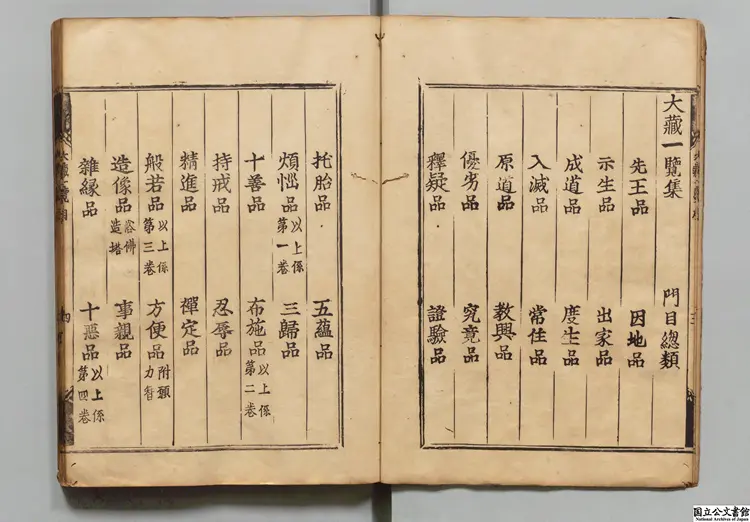 大藏一覽集 門目總類
先王品 因地品
示生品 出家品
成道品 度生品
入滅品 常住品
原道品 教興品
優劣品 究竟品
釋疑品 證驗品
托胎品 五蘊品
煩惱品以上係第一卷 三歸品
十善品 布施品以上係第二卷
持戒品 忍辱品
精進品 禪定品
般若品以上係第三卷 方便品附願力智
造像品浴佛造塔 事親品
雜緣品 十惡品以上係第四卷
国立公文書館
National Archives of Japan